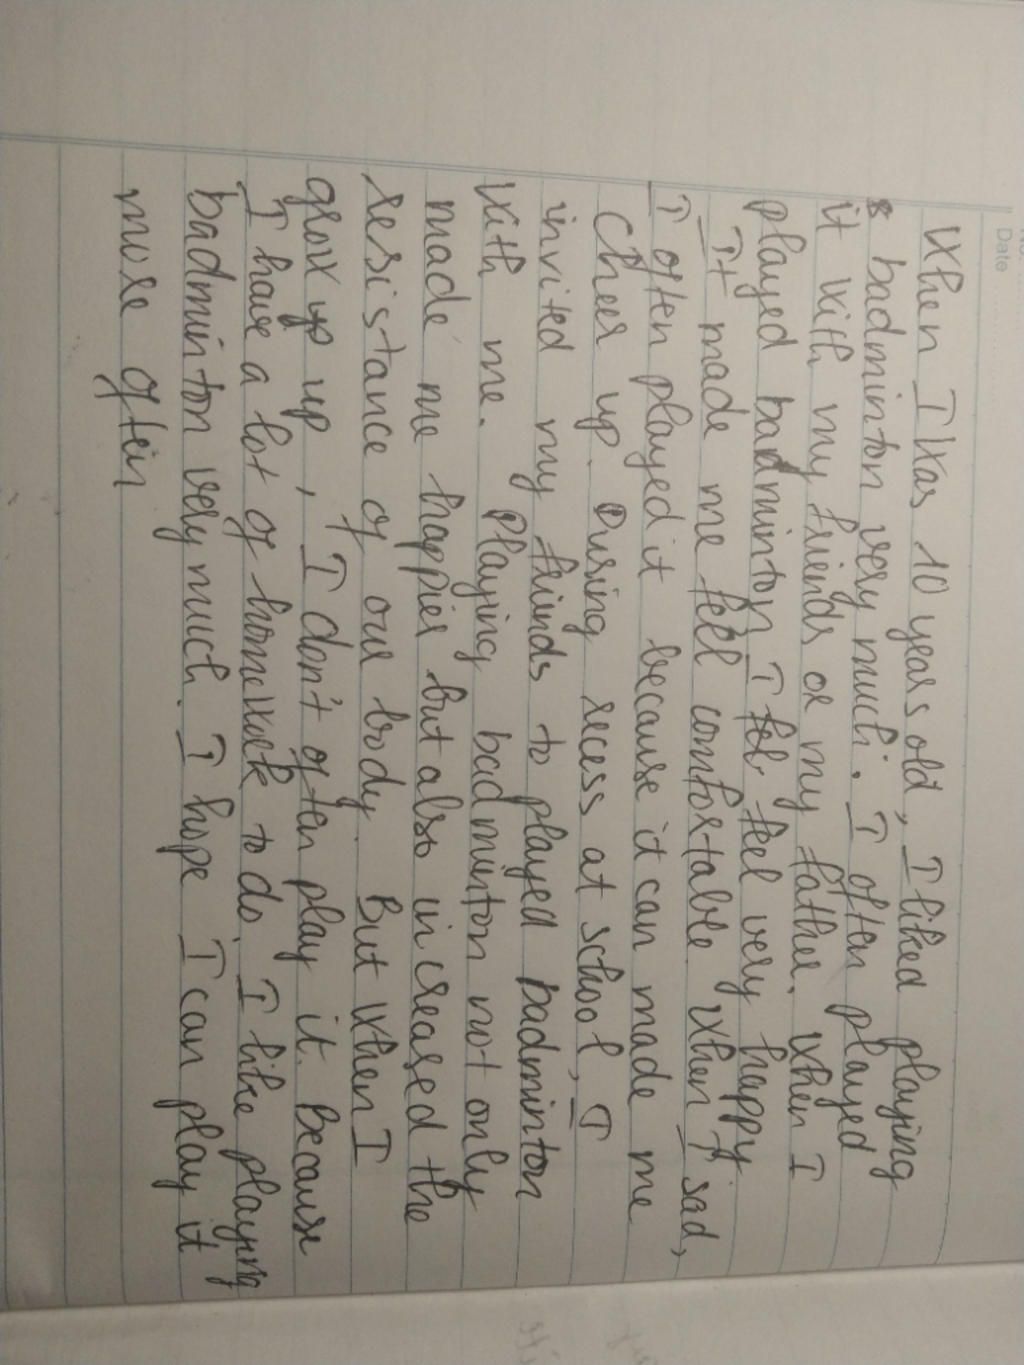 No.
Date
When I was 10 years old, I liked playing
badminton very much. I often played
it with my friends or my father. When I
played badminton I feel very happy
It made me feel comfortable. When I sad,
I often played it because it can made me
cheer up. During recess at school, I
invited my friends to played badminton
with me. Playing badminton not only
made me happier but also increased the
resistance of our body. But when I
grow up up, I don't often play it. Because
I have a lot of homework to do. I like playing
badminton very much. I hope I can play it
more often